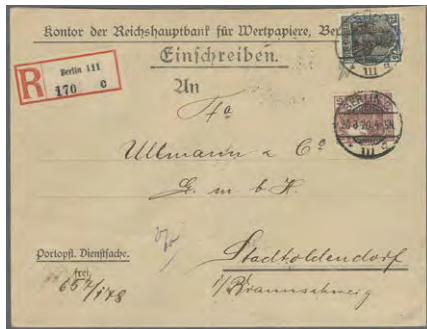 Kontor der Reichshauptbank für Wertpapiere, Ber
Einschreiben.
R
Berlin 111
170 c
An
Fa
Ullmann & Co
G. m. b. H.
Stadtoldendorf
i/Braunschweig
Portopfl. Dienstsache.
frei
657/178
BERLIN C
111